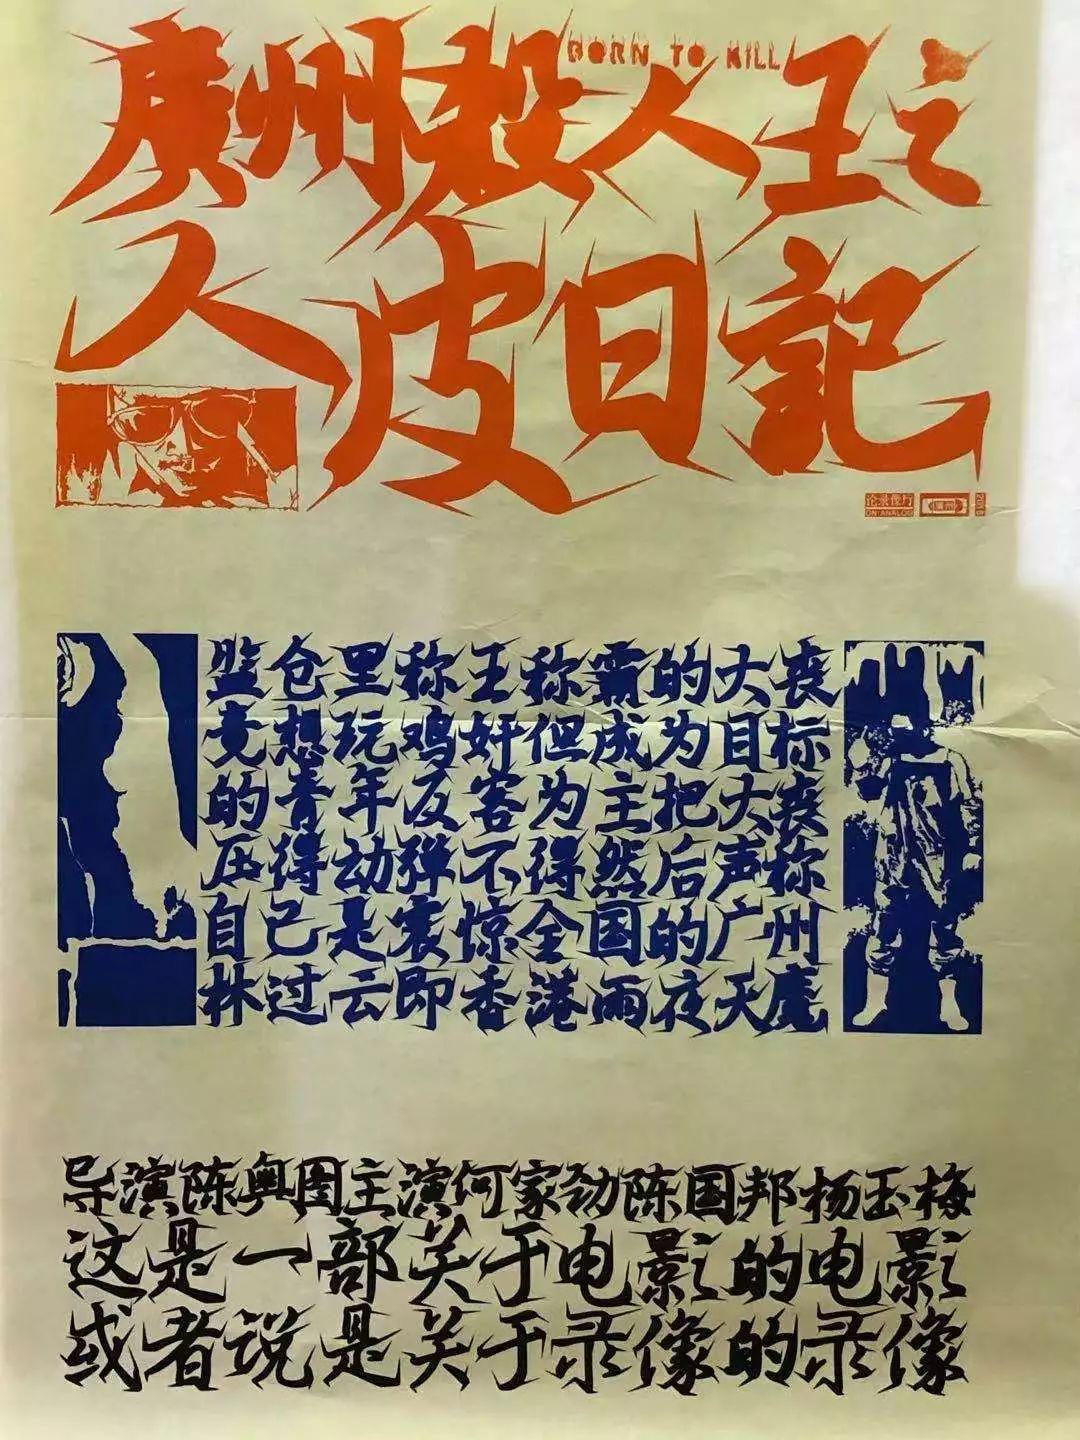 廣州殺人王之
BORN TO KILL
人皮日記
论录像厅
ON ANALOG
监仓里称王称霸的大丧
竟想玩鸡奸但成为目标
的青年反客为主把大丧
压得动弹不得然后声称
自己是震惊全国的广州
林过云即香港雨夜天魔
导演陈奥图主演何家劲陈国邦杨玉梅
这是一部关于电影的电影
或者说是关于录像的录像